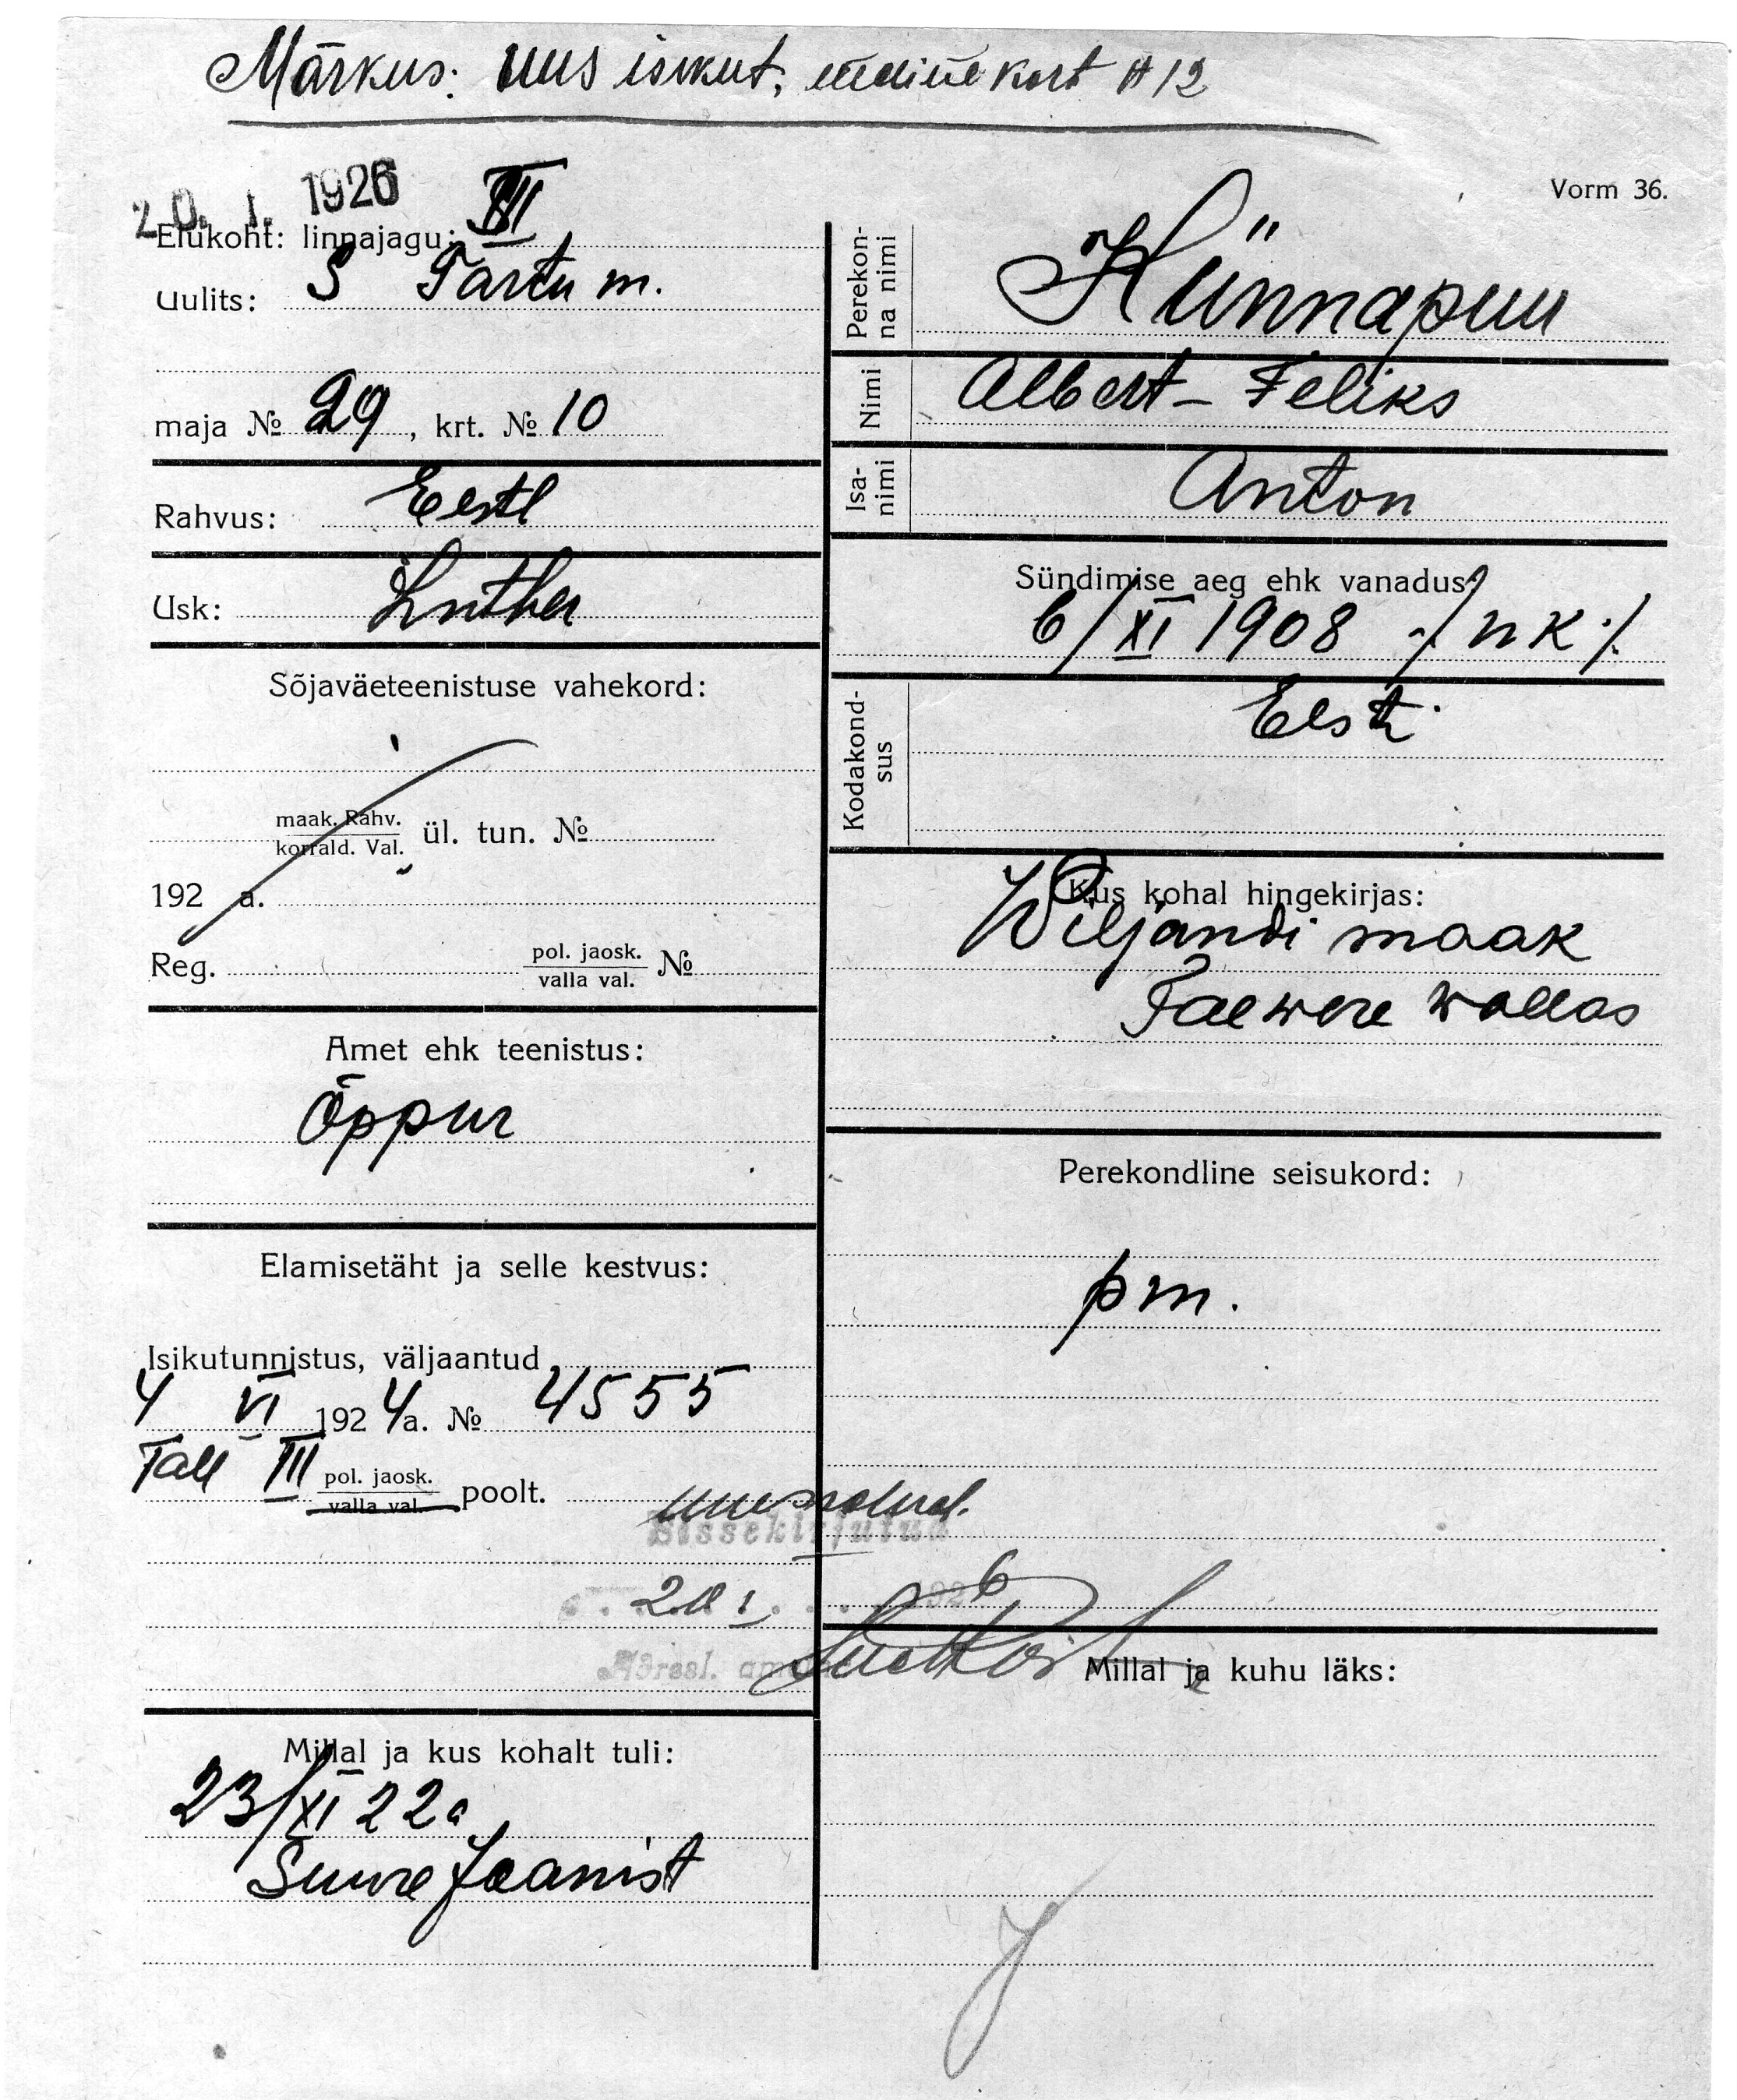 Märkus: uus isikut, endine kort # 12
20. I. 1926
Vorm 36.
Elukoht: linnajagu: III
Uulits: S Tartu m.
maja № 29, krt. № 10
Rahvus: Eestl
Usk: Luther
Sõjaväeteenistuse vahekord:
maak. Rahv.
korrald. Val. ül. tun. №
192 a.
Reg. pol. jaosk.
valla val. №
Amet ehk teenistus:
Õppur
Elamisetäht ja selle kestvus:
Isikutunnistus, väljaantud
4 VI 1924 a. № 4555
Tall III pol. jaosk.
valla val. poolt.
uuendud.
Sissekirjutud
20 I 1926
Millal ja kus kohalt tuli:
23/XI 22a
Suure Jaanist
Perekonna nimi
Künnapuu
Nimi
Albert-Feliks
Isanimi
Anton
Sündimise aeg ehk vanadus:
6/XI 1908 ./ n K ./.
Kodakondsus
Eesti
Kus kohal hingekirjas:
Wiljandi maak
Taewere wallas
Perekondline seisukord:
pm.
Millal ja kuhu läks: